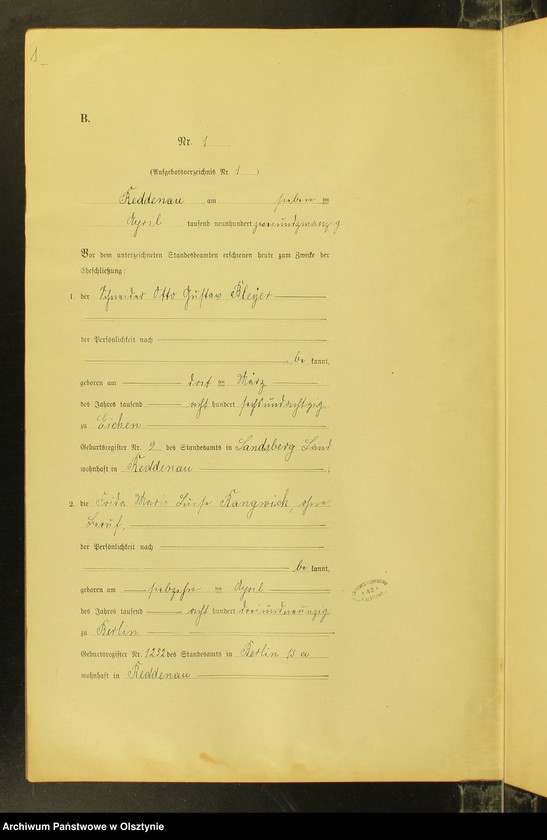 1
B.
Nr. 1
(Aufgebotsverzeichnis Nr. 1)
Reddenau am sieben ten
April tausend neunhundert zweiundzwanzig
Vor dem unterzeichneten Standesbeamten erschienen heute zum Zwecke der
Eheschließung:
1. der Schneider Otto Gustav Bleyer
der Persönlichkeit nach
be kannt,
geboren am drit ten März
des Jahres tausend acht hundert sechsundachtzig
zu Eichen
Geburtsregister Nr. 9 des Standesamts in Landsberg Land
wohnhaft in Reddenau;
2. die Frida Marie Luise Kangowick, ohne
Beruf,
der Persönlichkeit nach
be kannt,
geboren am siebzehn ten April
des Jahres tausend acht hundert dreiundneunzig
zu Berlin
Geburtsregister Nr. 1232 des Standesamts in Berlin 13 a
wohnhaft in Reddenau
42
Archiwum Państwowe w Olsztynie